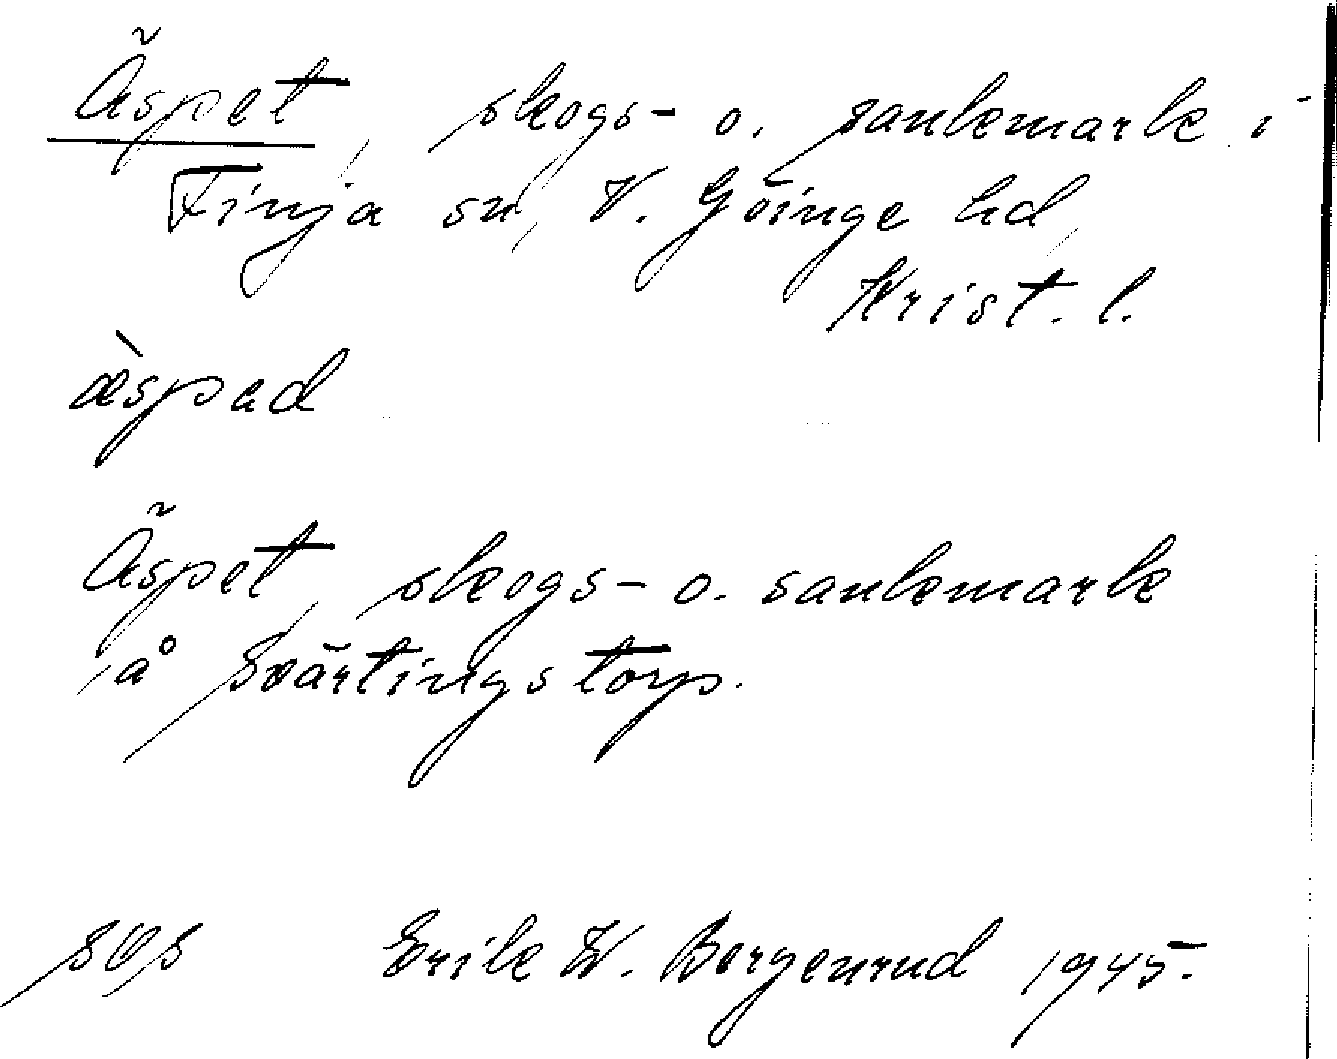 Äspet, skogs- o. sankmark i
Finja sn, V. Göinge hd,
Krist. l.
æ̀spad
Äspet, skogs- o. sankmark
å Svärtingstorp.
Erik W. Bergenrud 1945.